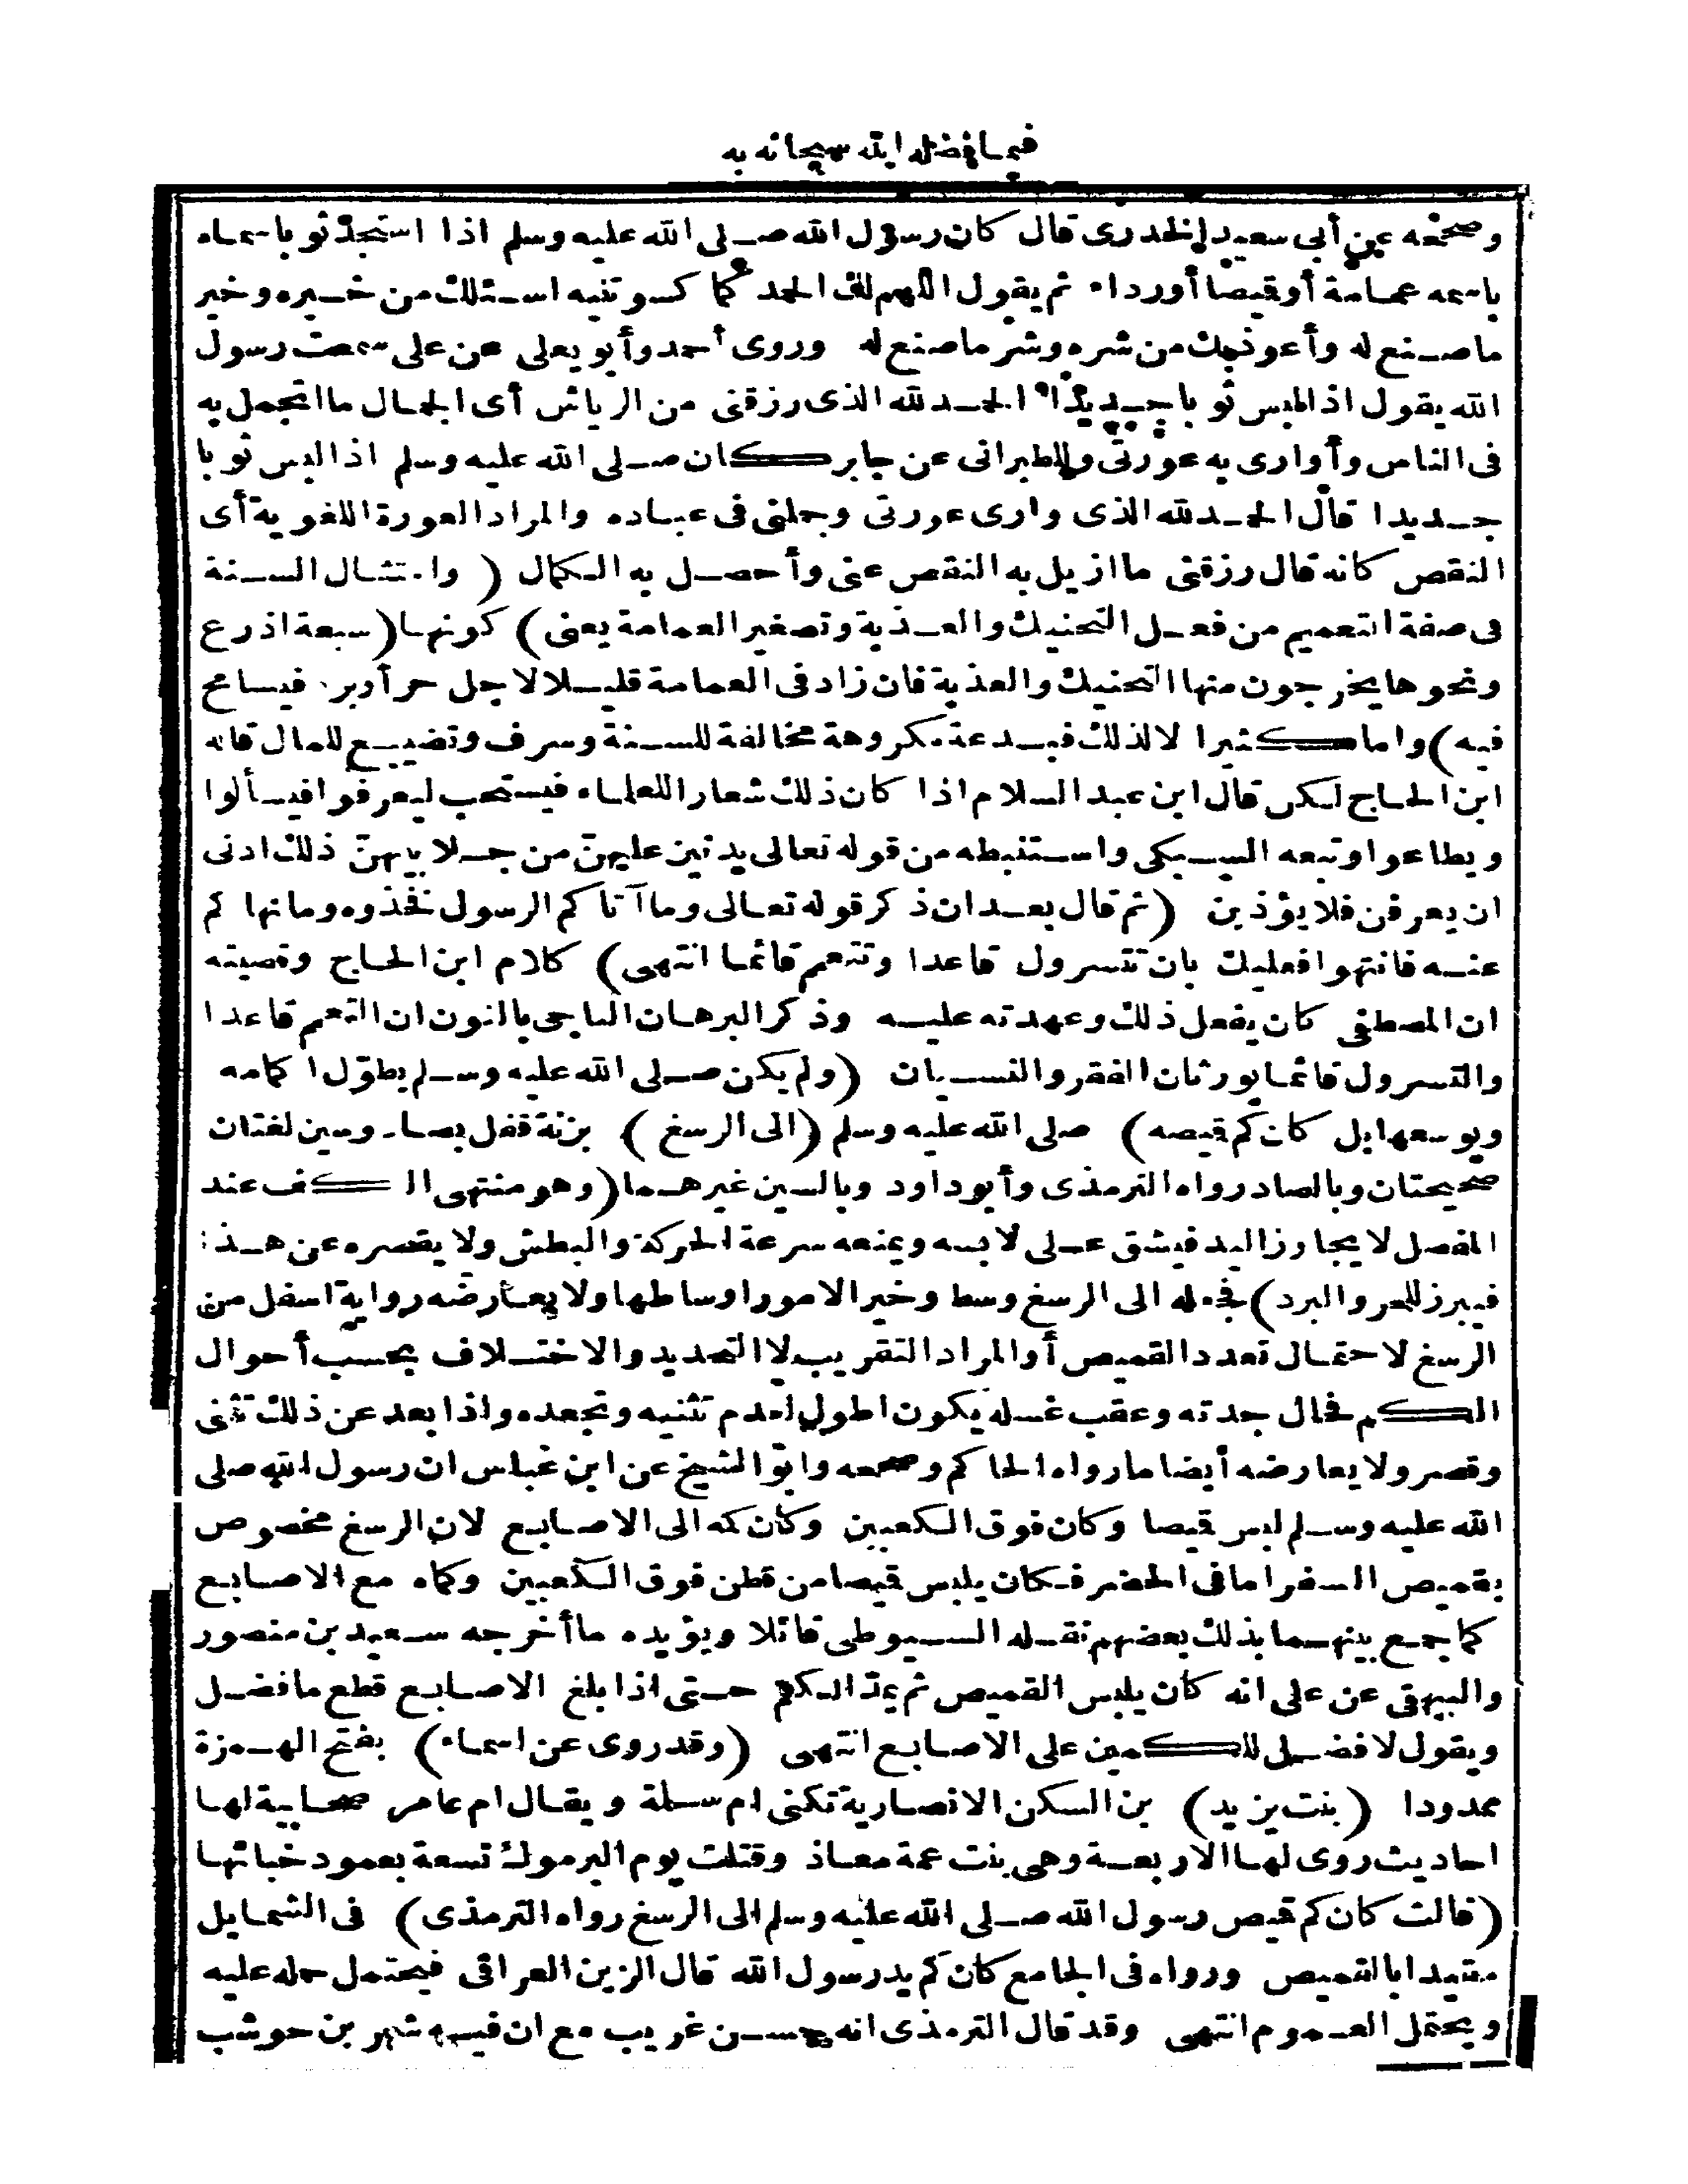 فيما فضله الله سبحانه به
وصححه عن أبى سعيد الخدرى قال كان رسول الله صلى الله عليه وسلم اذا استجد ثوبا سماه
باسمه عمامة أوقيصا أورداء ثم يقول اللهم لك الحمد كما كسوتنيه اسئلك من خيره وخير
ماصنع له وأعوذبك من شره وشر ماصنع له وروى أحمد وأبو يعلى عن على سمعت رسول
الله يقول اذا لبس ثوبا جديدا الحمد لله الذى رزقنى من الرياش أى الجمال ما اتجمل به
فى الناس وأوارى به عورتى وللطبرانى عن جابر كان صلى الله عليه وسلم اذا لبس ثوبا
جديدا قال الحمد لله الذى وارى عورتى وجملنى فى عباده والمراد العورة اللغوية أى
النقص كانه قال رزقنى ما ازيل به النقص عنى وأحصل به الكمال (وامتثال السنة
فى صفة التعميم من فعل التحنيك والعذبة وتصغير العمامة يعنى) كونها (سبعة اذرع
ونحوها يخرجون منها التحنيك والعذبة فان زاد فى العمامة قليلا لاجل حر أوبرد فيسامح
فيه) واما كثيرا لا لذلك فبدعة مكروهة مخالفة للسنة وسرف وتضييع للمال قاله
ابن الحاج لكن قال ابن عبد السلام اذا كان ذلك شعارا للعلماء فيستحب ليعرفوا فيسألوا
ويطاعوا وتبعه السبكى واستنبطه من قوله تعالى يدنين عليهن من جلابيبهن ذلك ادنى
ان يعرفن فلا يؤذين (ثم قال بعد ان ذكر قوله تعالى وما آتاكم الرسول فخذوه ومانهاكم
عنه فانتهوا فعليك بان تتسرول قاعدا وتتعمم قائما انتهى) كلام ابن الحاج وقضيته
ان المصطفى كان يفعل ذلك وعهدته عليه وذكر البرهان الناجى بالنون ان التعمم قاعدا
والتسرول قائما يورثان الفقر والنسيان (ولم يكن صلى الله عليه وسلم يطوّل اكمامه
ويوسعها بل كان كم قيصه) صلى الله عليه وسلم (الى الرسغ) بزنة قفل بصاد وسين لغتان
صحيحتان وبالصاد رواه الترمذى وأبوداود وبالسين غيرهما (وهو منتهى الكف عند
المفصل لا يجاوز اليد فيشق على لابسه ويمنعه سرعة الحركة والبطش ولا يقصره عن هذا
فيبرز للحر والبرد) فجعله الى الرسغ وسط وخير الامور اوساطها ولا يعارضه رواية اسفل من
الرسغ لاحتمال تعدد القميص أو المراد التقريب لا التحديد والاختلاف بحسب أحوال
الكم فحال جدته وعقب غسله يكون اطول لعدم تثنيه وتجعده واذا بعد عن ذلك تثنى
وقصر ولا يعارضه أيضا مارواه الحاكم وصححه وابو الشيخ عن ابن عباس ان رسول الله صلى
الله عليه وسلم لبس قيصا وكان فوق الكعبين وكان كمه الى الاصابع لان الرسغ مخصوص
بقميص السفر اما فى الحضر فكان يلبس قيصا من قطن فوق الكعبين وكماه مع الاصابع
كما جمع بينهما بذلك بعضهم نقله السيوطى قائلا ويؤيده ما أخرجه سعيد بن منصور
والبيهقى عن على انه كان يلبس القميص ثم يمدّ الكم حتى اذا بلغ الاصابع قطع مافضل
ويقول لا فضل للكمين على الاصابع انتهى (وقدروى عن اسماء) بفتح الهمزة
ممدودا (بنت يزيد) بن السكن الانصارية تكنى ام سلمة ويقال ام عامر صحابية لها
احاديث روى لها الاربعة وهى بنت عمة معاذ وقتلت يوم اليرموك تسعة بعمود خبائها
(قالت كان كم قيص رسول الله صلى الله عليه وسلم الى الرسغ رواه الترمذى) فى الشمايل
مقيدا بالقميص ورواه فى الجامع كان كم يد رسول الله قال الزين العراقى فيحتمل حمله عليه
ويحتمل العموم انتهى وقد قال الترمذى انه حسن غريب مع ان فيه شهر بن حوشب